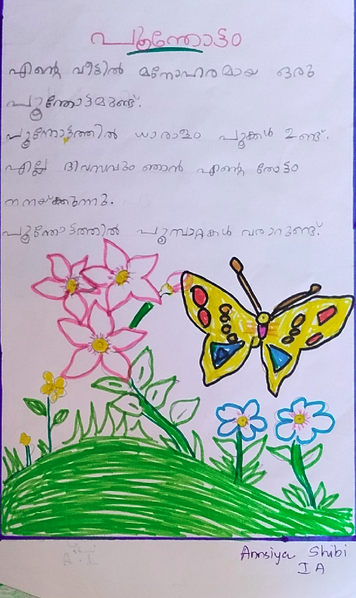 പൂന്തോട്ടം
എന്റെ വീട്ടിൽ മനോഹരമായ ഒരു
പൂന്തോട്ടമുണ്ട്.
പൂന്തോട്ടത്തിൽ ധാരാളം പൂക്കൾ ഉണ്ട്.
എല്ലാ ദിവസവും ഞാൻ എന്റെ തോട്ടം
നനയ്ക്കുന്നു.
പൂന്തോട്ടത്തിൽ പൂമ്പാറ്റകൾ വരാറുണ്ട്.
Amsiya Shibi
I A